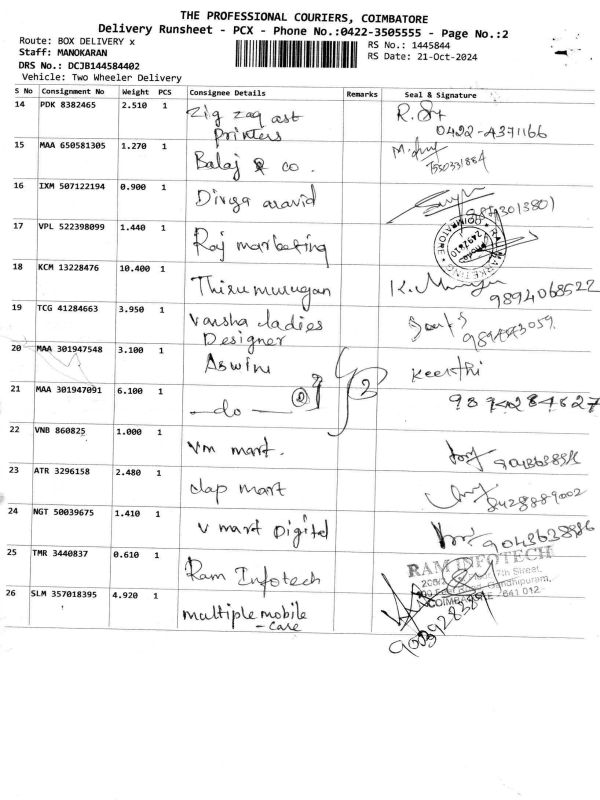 THE PROFESSIONAL COURIERS, COIMBATORE
Delivery Runsheet - PCX - Phone No.:0422-3505555 - Page No.:2
Route: BOX DELIVERY x
RS No.: 1445844
Staff: MANOKARAN
RS Date: 21-Oct-2024
DRS No.: DCJB144584402
Vehicle: Two Wheeler Delivery
S No Consignment No Weight PCS Consignee Details Remarks Seal & Signature
14 PDK 8382465 2.510 1 Zig Zag ast
Printers
0422-4371166
15 MAA 650581305 1.270 1 Balaj & co.
7550331884
16 IXM 507122194 0.900 1 Divya aravid
17 VPL 522398099 1.440 1 Raj marketing
RAJ MARKETING COIMBATORE
18 KCM 13228476 10.400 1 Thirumurugan
9894068522
19 TCG 41284663 3.950 1 Varsha ladies
Designer
20 MAA 301947548 3.100 1 Aswini Keerthi
21 MAA 301947091 6.100 1 —do— 2
22 VNB 860825 1.000 1 Vm mart.
23 ATR 3296158 2.480 1 dap mart
8428889002
24 NGT 50039675 1.410 1 V mart Digital
9043638886
25 TMR 3440837 0.610 1 Ram Infotech
RAM INFOTECH
7th Street,
Gandhipuram,
COIMBATORE - 641 012
26 SLM 357018395 4.920 1 multiple mobile
- care
9003928389